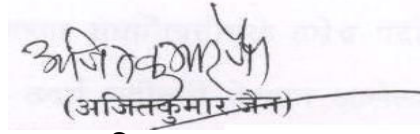 अजितकुमार जैन
(अजितकुमार जैन)